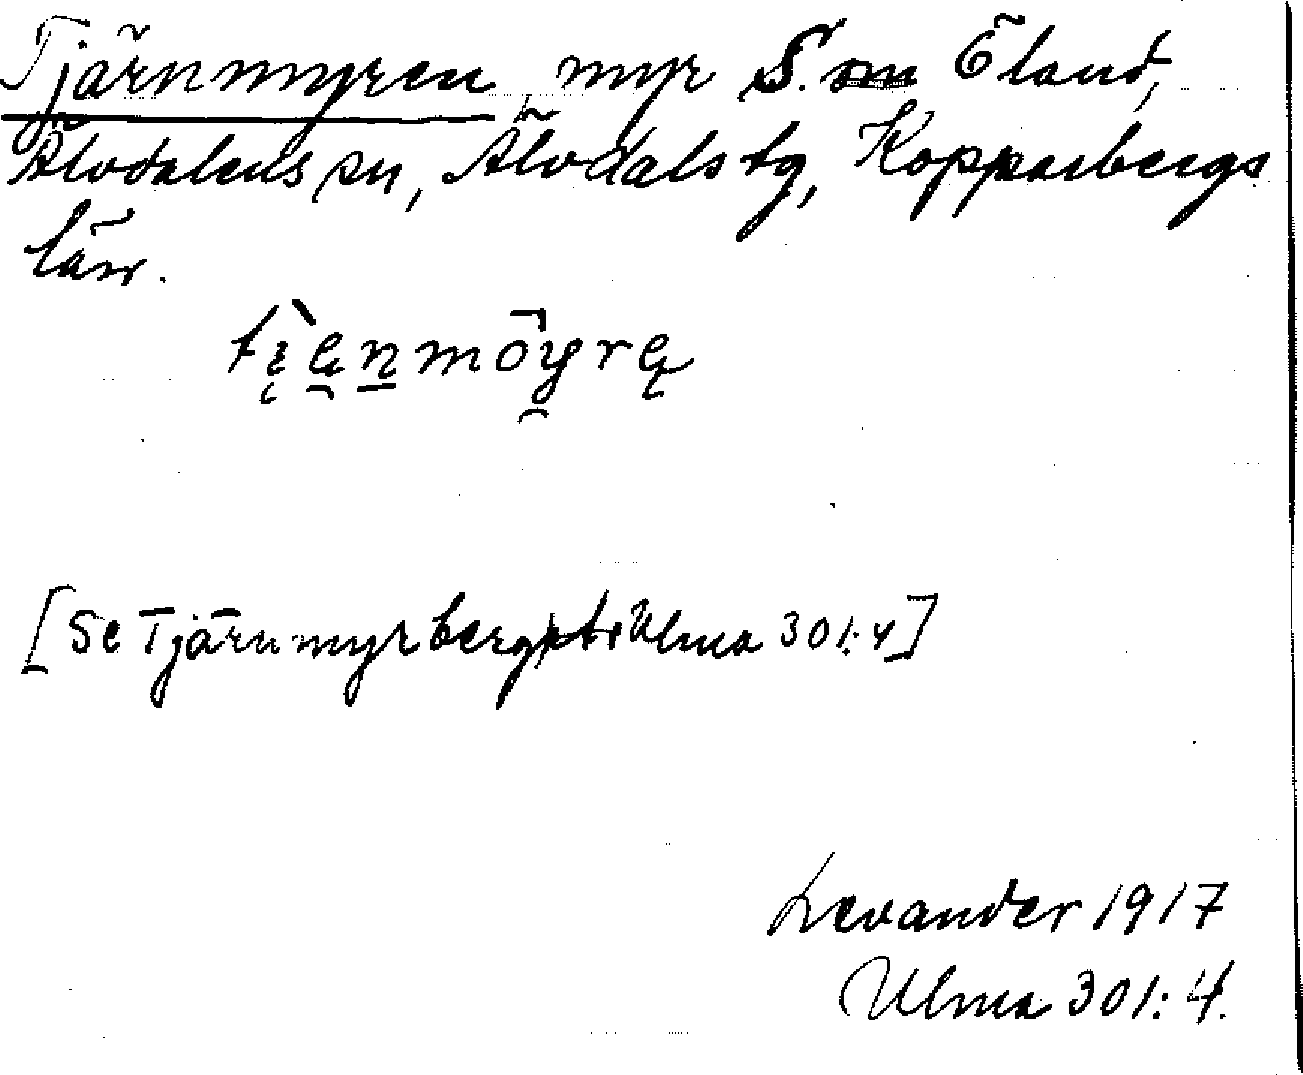 Tjärnmyren, myr S. om Öland,
Älvdalens sn, Älvdals tg, Kopparbergs
län.
[Se Tjärnmyrberget Ulma 301:4]
Levander 1917
Ulma 301:4.